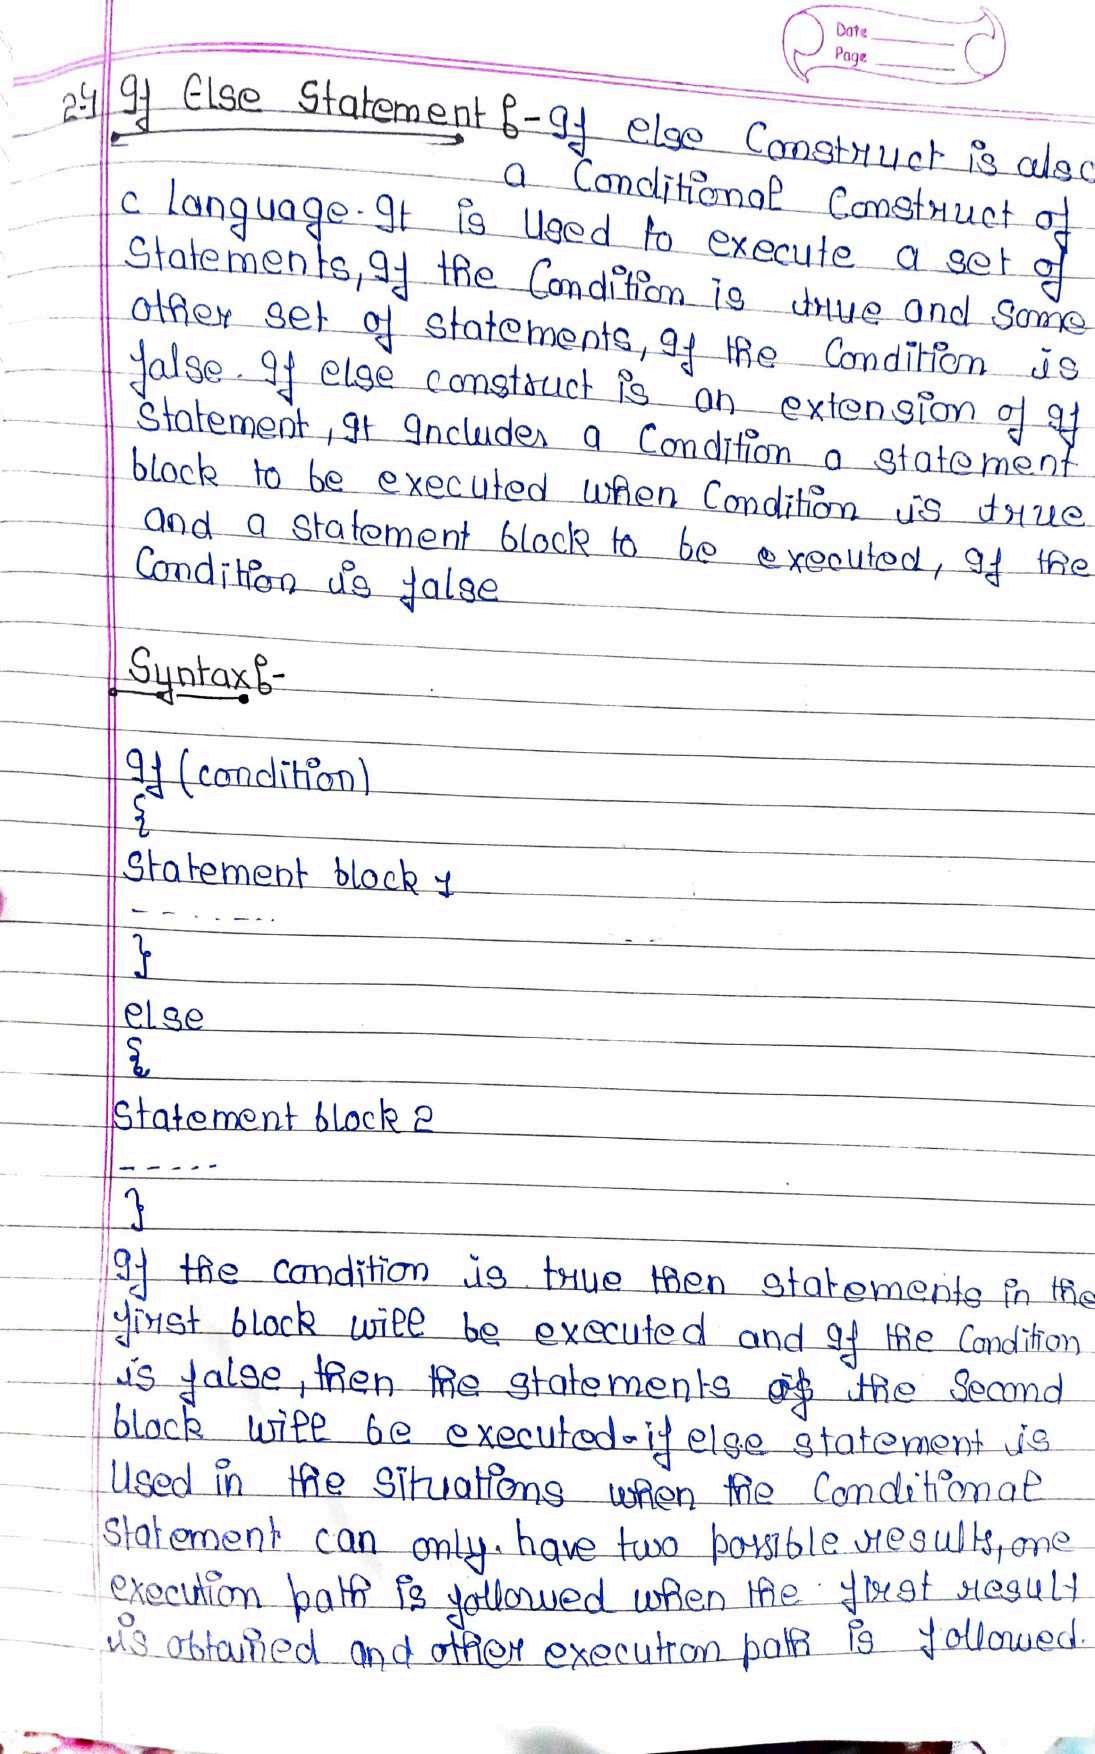 Date
Page
24 If Else Statement :- If else Construct is also
a Conditional Construct of
C language. It is Used to execute a set of
Statements, If the Condition is true and some
other set of statements, If the Condition is
false. If else construct is an extension of If
Statement, It Includes a Condition a statement
block to be executed when Condition is true
and a statement block to be executed, If the
Condition is false
Syntax :-
If (condition)
{
Statement block 1
- - . . - - . .
}
else
{
Statement block 2
- - - - -
}
If the condition is true then statements in the
first block will be executed and If the Condition
is false, then the statements of the Second
block will be executed. if else statement is
Used in the Situations when the Conditional
Statement can only have two possible results, one
execution path is followed when the first result
is obtained and other execution path is followed.